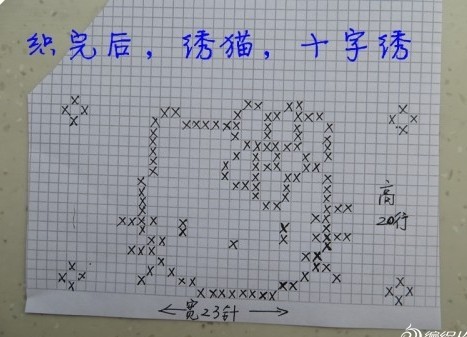 织完后，绣猫，十字绣
高
20行
宽23针